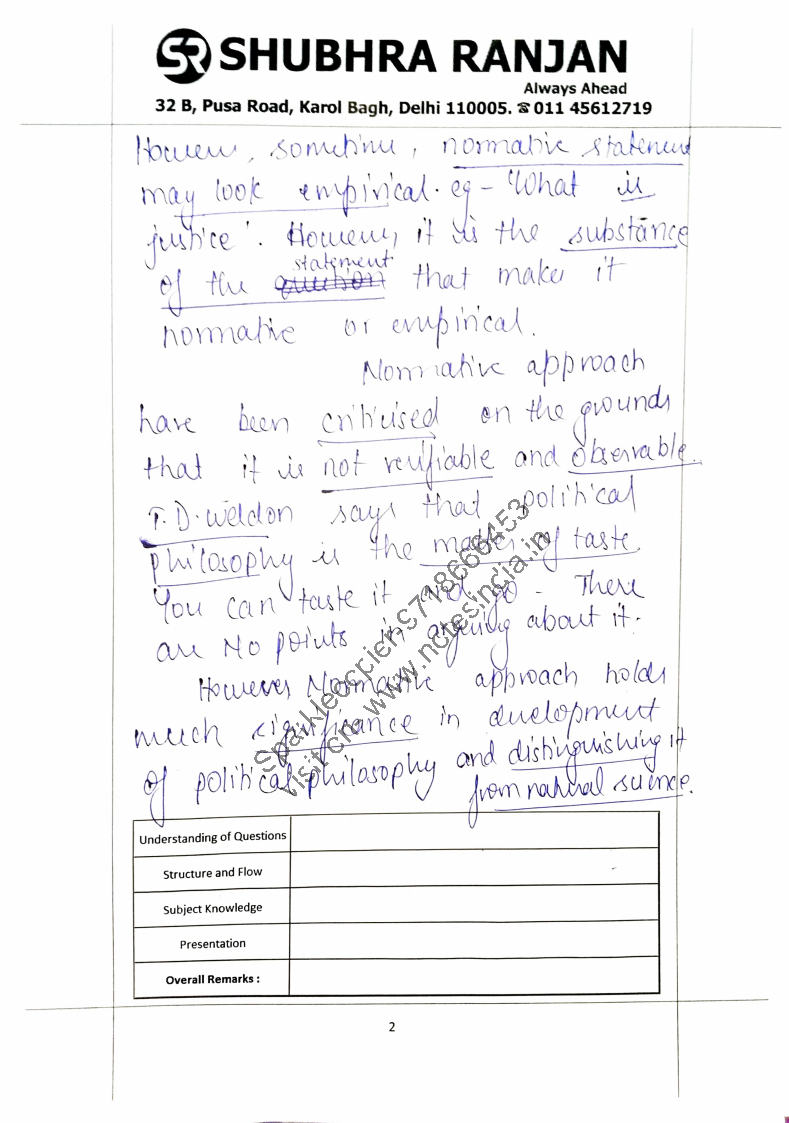 SR SHUBHRA RANJAN
Always Ahead
32 B, Pusa Road, Karol Bagh, Delhi 110005. ☎ 011 45612719
However, sometime, normative statement
may look empirical. eg - 'What is
justice'. However, it is the substance
statement
of the question that make it
normative or empirical.
Normative approach
have been criticised on the grounds
that it is not verifiable and observable.
T.D. Weldon says that political
philosophy is the matter of taste.
You can taste it and go. There
are No points in arguing about it.
However Normative approach holds
much significance in development
of political philosophy and distinguishing it
from natural science.
visit www.notesindia.in
Understanding of Questions
Structure and Flow
Subject Knowledge
Presentation
Overall Remarks :
2